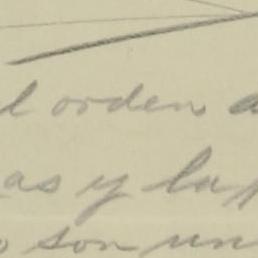 l orden
as y la
o son un